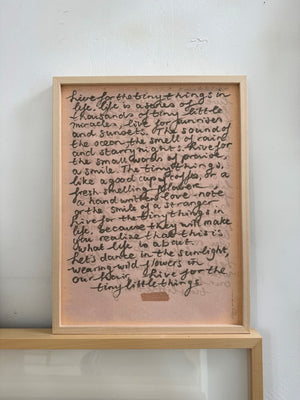 Live for the tiny things in
life. Life is a series of
thousands of tiny little
miracles, live for sunrises
and sunsets. The sound of
the ocean, the smell of rain
and starry nights. Live for
the small words of praise
a smile. The tiny things,
like a good cup of coffee, or a
fresh smelling flower
a hand written love-note
or the smile of a stranger
Live for the tiny things in
life, because they will make
you realize that this is
what life is about.
Let's dance in the sunlight,
wearing wild flowers in
our hair. Live for the
tiny little things